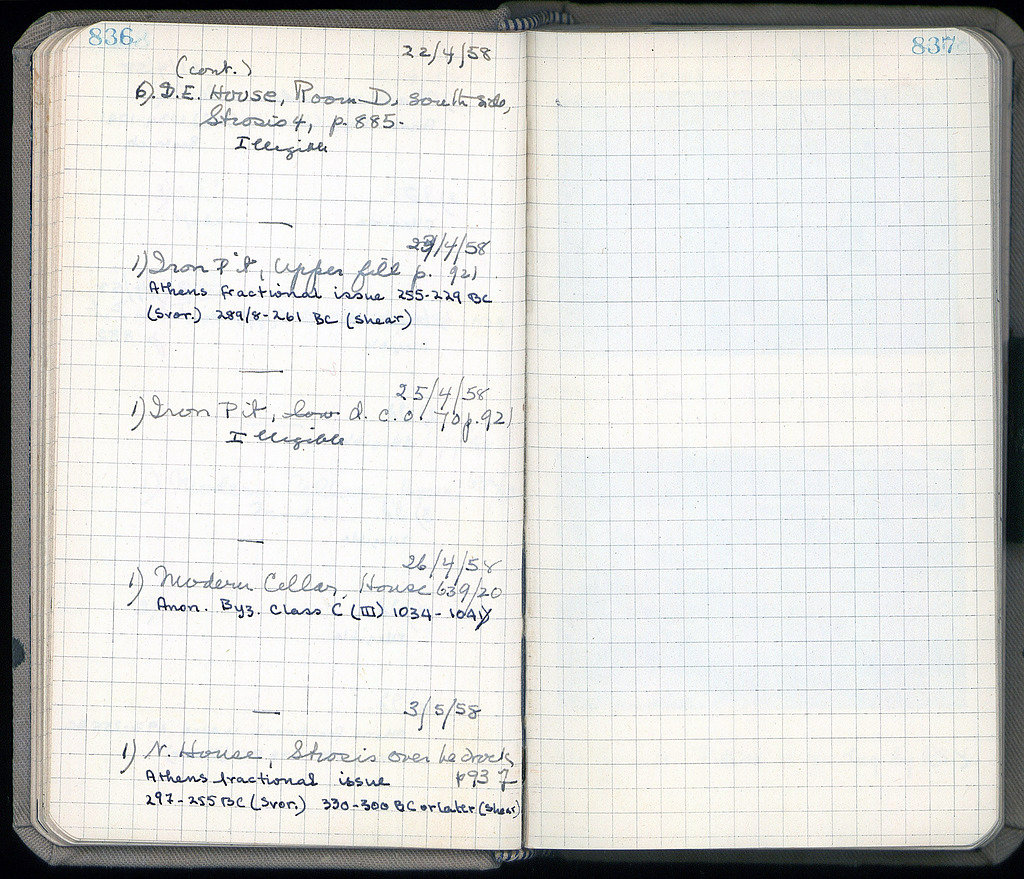 836
22/4/58
(cont.)
6). D.E. House, Room D, south side,
Strosis 4, p. 885.
Illegible
—
/4/58
1) Iron Pit, Upper fill p. 921
Athens fractional issue 255-229 BC
(Svor.) 289/8-261 BC (Shear)
—
25/4/58
1) Iron Pit, low d. c. 0.70 p. 921
Illegible
—
26/4/58
1) Modern Cellar, House 639/20
Anon. Byz. Class C (III) 1034-1041
—
3/5/58
1) N. House, Strosis over bedrock,
p 937
Athens fractional issue
297-255 BC (Svor.) 330-300 BC or later (Shear)
837